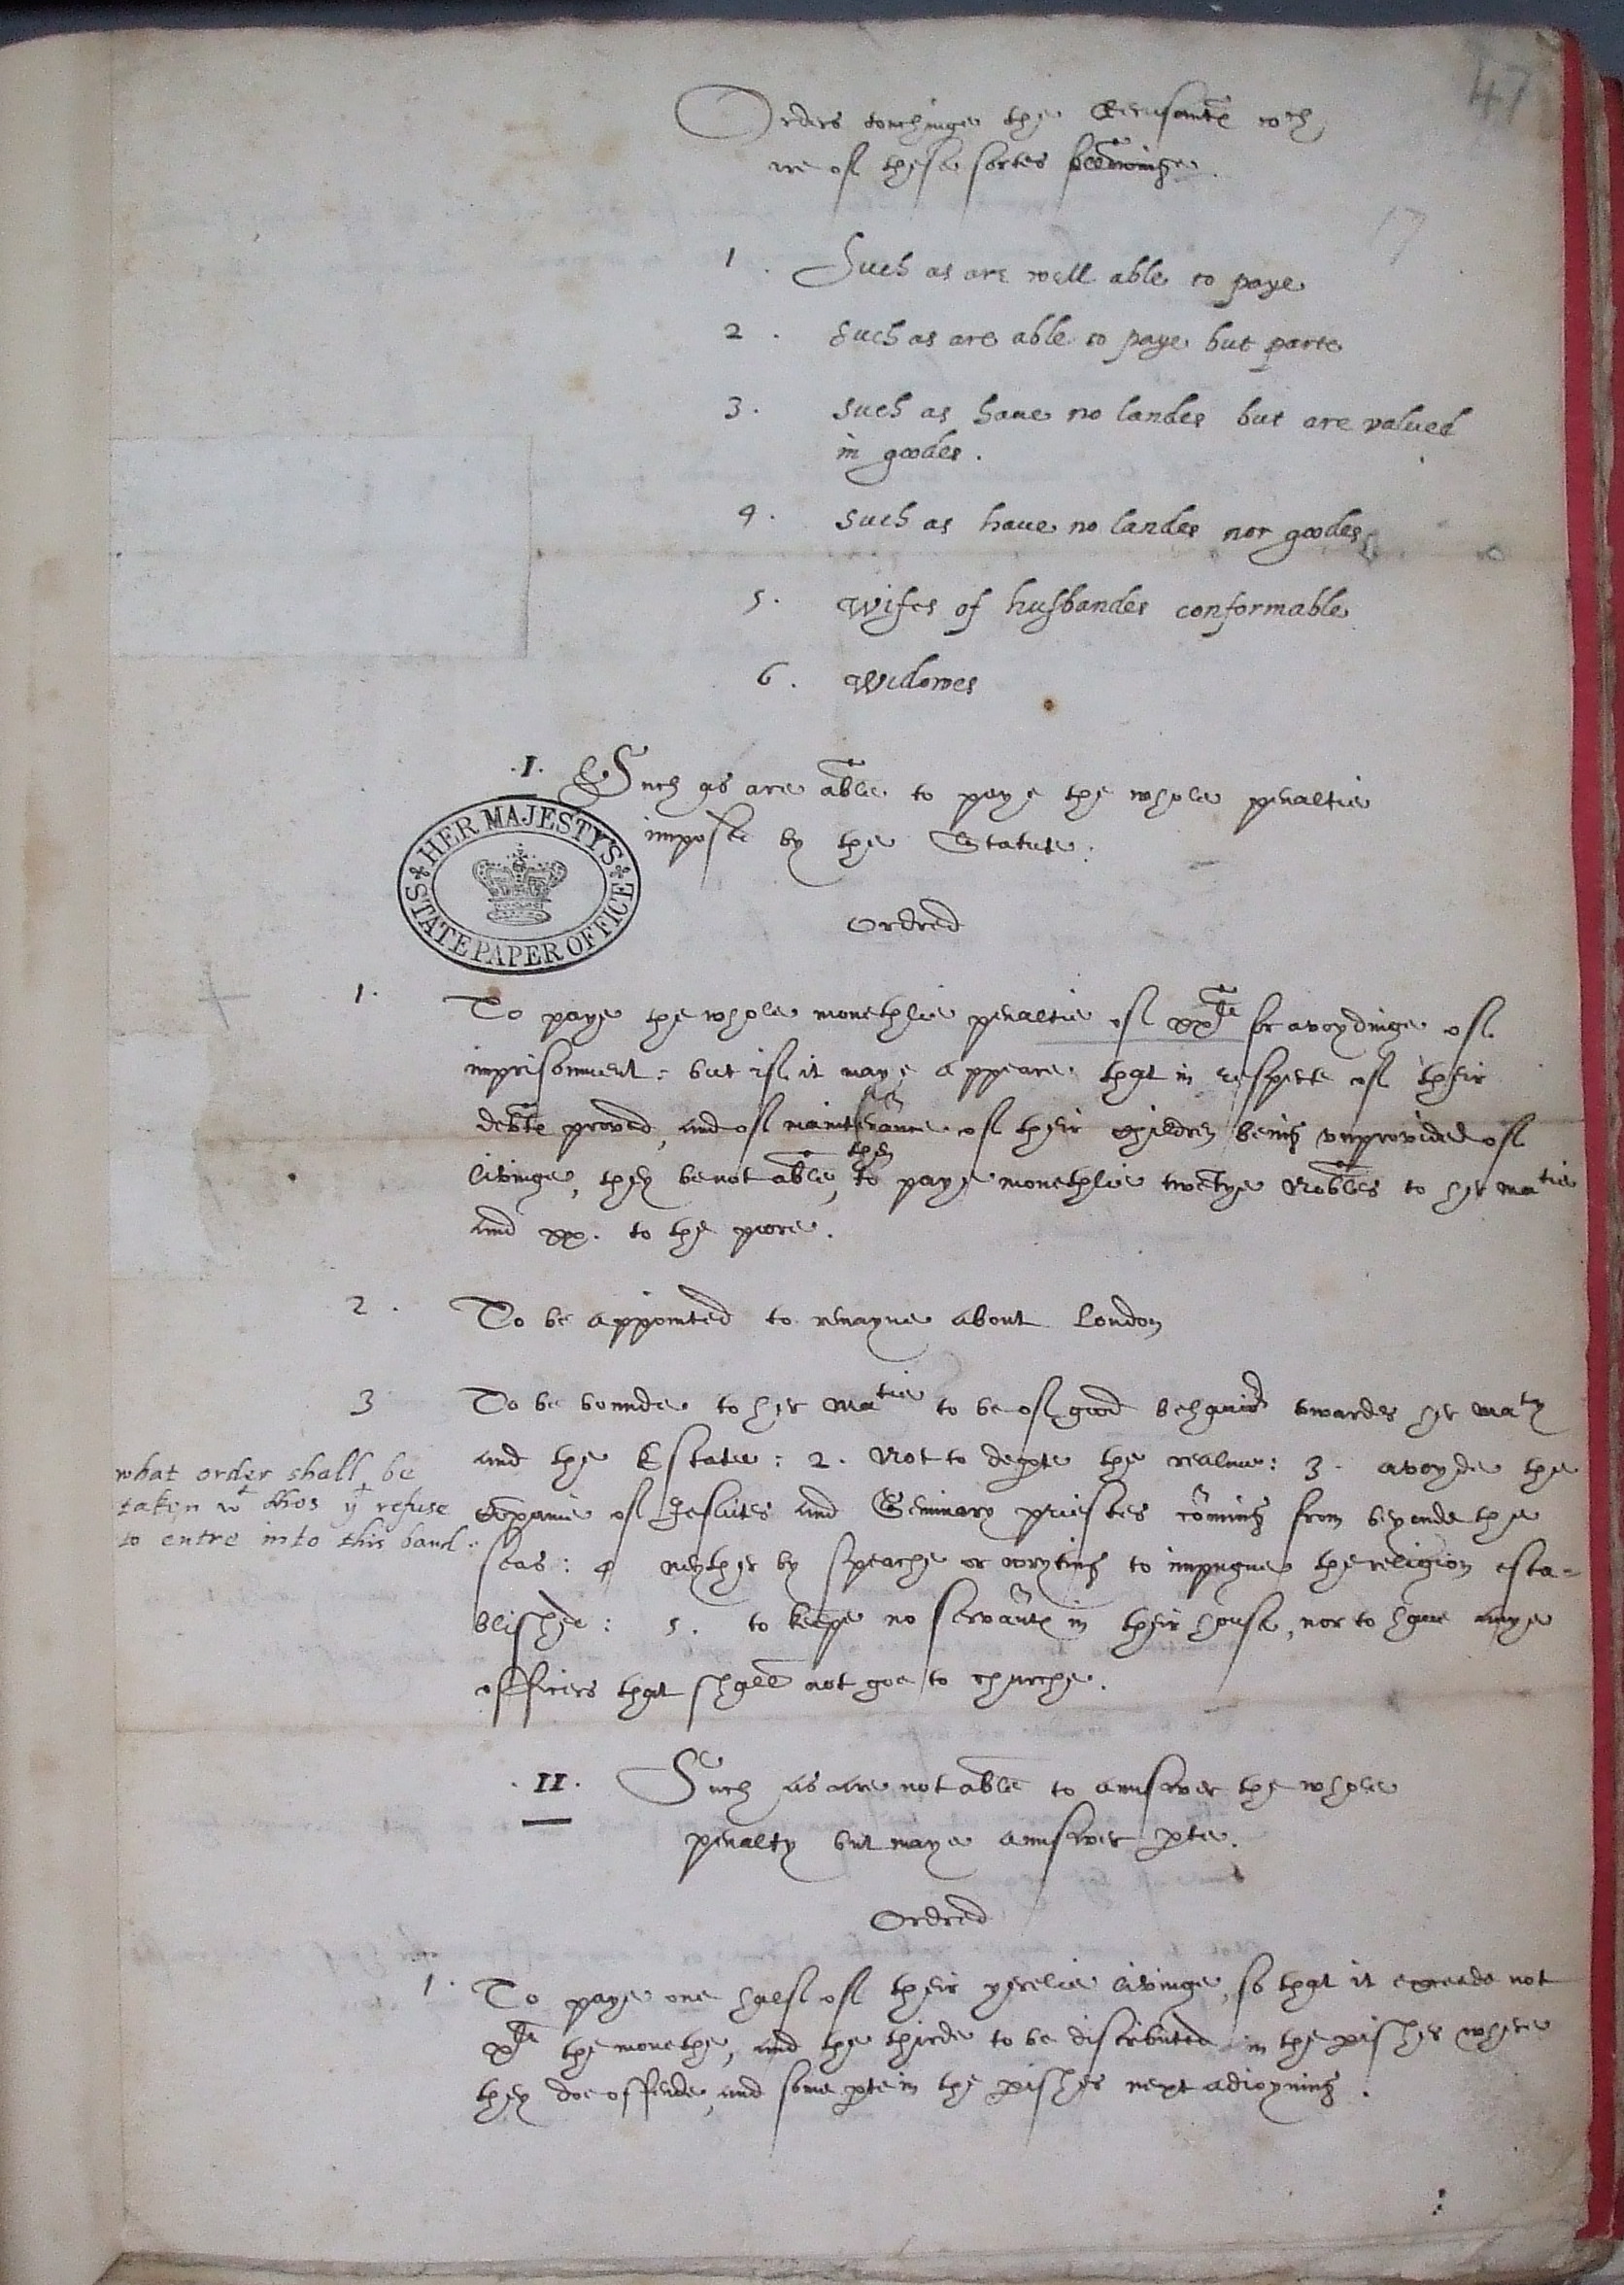 47
Orders touchinge the Recusantes wch
are of these sortes followinge.
17
1. Such as are well able to paye
2. Such as are able to paye but parte
3. Such as haue no landes but are valued
in goodes.
4. Such as haue no landes nor goodes
5. Wifes of husbandes conformable
6. Widowes
.I. Such as are able to paye the whole penaltie
imposed by the Statute.
HER MAJESTY'S
STATE PAPER OFFICE
Ordred
1. To paye the whole monethlie penaltie of xxli for avoydinge of
imprisonment: but if it maye appeare that in respecte of their
debtes proved, and of maintenance of their children being vnprovided of
livinge, they be not able, then to paye monethlie twentye Nobles to her matie
and xx. to the poore.
2. To be appointed to remayne about London
3 To be bounde to her Matie to be of good behauior towardes her Maty
and the Estate: 2. Not to depte the realme: 3. avoyde the
what order shall be
taken wt thos yt refuse
to entre into this band.
Cōpanie of Jesuites and Seminary priestes cōming from beyonde the
seas: 4 neyther by speache or wryting to impugne the religion esta-
blished: 5. to keepe no servātes in their house, nor to haue anye
officers that shall not goe to churche.
.II. Such as are not able to annswer the whole
penalty but maye annswer pte.
Ordred
1. To paye one halfe of their yerelie livinge, so that it exceede not
xli the monethe, and the thirde to be distributed in the pishes where
they doe offende, and some pte in the pishes next adioyning.